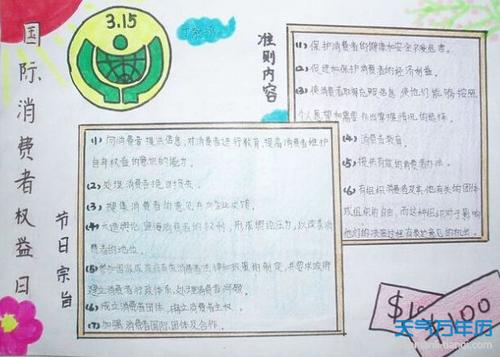 国际消费者权益日
3.15
准则内容
(1) 保护消费者的健康和安全不受危害。
(2) 促进和保护消费者的经济利益。
(3) 使消费者取得充足信息，使他们能够按照
个人愿望和需要作出掌握情况的选择。
(4) 消费者教育。
(5) 提供有效的消费者办法。
(6) 有组织消费者及其他有关的团体
或组织的自由，而这种组织对于影响
他们的决策过程有表达意见的机会。
节日宗旨
(1) 向消费者提供信息，对消费者进行教育，提高消费者维护
自身权益的意识和能力。
(2) 处理消费者投诉
(3) 搜集消费者的意见并向企业反馈。
(4) 大造舆论，宣传消费者的权利，形成舆论压力，以改善消
费者的地位。
(5) 参加国家或政府有关消费者法律和政策的制定，并要求政府
建立消费者行政体系，处理消费者问题。
(6) 成立消费者团体，确立消费者主权。
(7) 加强消费者国际团体及合作。
$100
天气万年历